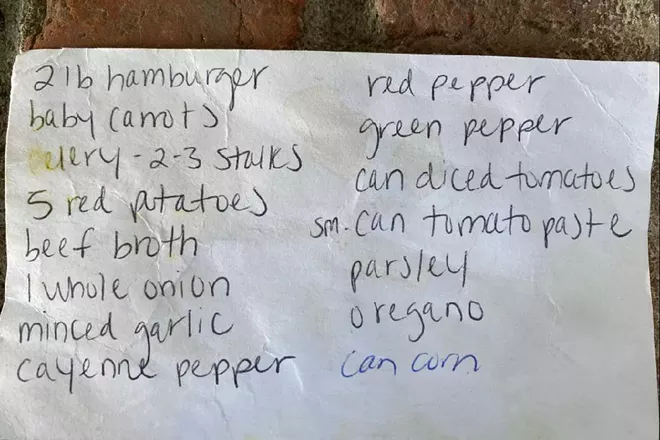 2 lb hamburger
baby carrots
celery - 2-3 stalks
5 red potatoes
beef broth
1 whole onion
minced garlic
cayenne pepper
red pepper
green pepper
can diced tomatoes
sm. can tomato paste
parsley
oregano
can corn